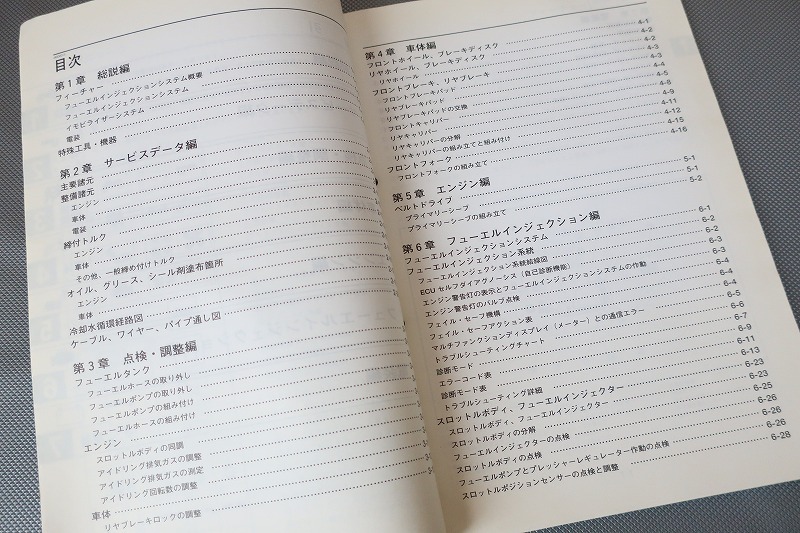 目次
第1章 総説編
フィーチャー
フューエルインジェクションシステム概要
フューエルインジェクションシステム
イモビライザーシステム
電装
特殊工具・機器
第2章 サービスデータ編
主要諸元
整備諸元
エンジン
車体
電装
締付トルク
エンジン
車体
その他、一般締め付けトルク
オイル、グリース、シール剤塗布箇所
エンジン
車体
冷却水循環経路図
ケーブル、ワイヤー、パイプ通し図
第3章 点検・調整編
フューエルタンク
フューエルホースの取り外し
フューエルポンプの取り外し
フューエルポンプの組み付け
フューエルホースの組み付け
エンジン
スロットルボディの同調
アイドリング排気ガスの調整
アイドリング排気ガスの測定
アイドリング回転数の調整
車体
リヤブレーキロックの調整
第4章 車体編
フロントホイール、ブレーキディスク 4-1
リヤホイール、ブレーキディスク 4-2
リヤホイール 4-2
フロントブレーキ、リヤブレーキ 4-3
フロントブレーキパッド 4-3
リヤブレーキパッド 4-4
リヤブレーキパッドの交換 4-5
フロントキャリパー 4-8
リヤキャリパー 4-9
リヤキャリパーの分解 4-11
リヤキャリパーの組み立てと組み付け 4-12
フロントフォーク 4-15
フロントフォークの組み立て 4-16
第5章 エンジン編
ベルトドライブ 5-1
プライマリーシーブ 5-1
プライマリーシーブの組み立て 5-2
第6章 フューエルインジェクション編
フューエルインジェクションシステム 6-1
フューエルインジェクション系統 6-2
フューエルインジェクション系統結線図 6-2
ECU セルフダイアグノーシス（自己診断機能） 6-3
エンジン警告灯の表示とフューエルインジェクションシステムの作動 6-3
エンジン警告灯のバルブ点検 6-4
フェイル・セーフ機構 6-4
フェイル・セーフアクション表 6-4
マルチファンクションディスプレイ（メーター）との通信エラー 6-5
トラブルシューティングチャート 6-6
診断モード 6-7
エラーコード表 6-9
診断モード表 6-11
トラブルシューティング詳細 6-13
スロットルボディ、フューエルインジェクター 6-23
スロットルボディ、フューエルインジェクター 6-23
スロットルボディの分解 6-25
フューエルインジェクターの点検 6-26
スロットルボディの点検 6-26
フューエルポンプとプレッシャーレギュレーター作動の点検 6-26
スロットルポジションセンサーの点検と調整 6-28